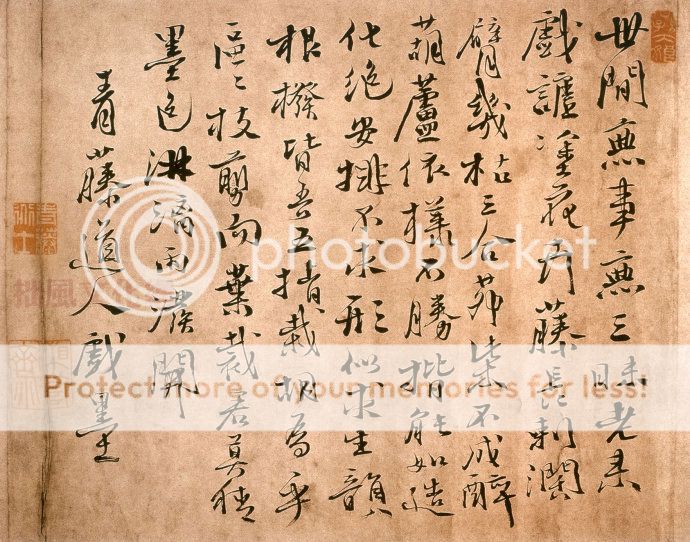 世間無事無三昧老來
戲謔塗花卉藤長刺闊
臂幾枯三合茅柴不成醉
葫蘆依樣不勝揩能如造
化絕安排不求形似求生韻
根撥皆吾五指栽胡為乎
區〻枝剪而葉裁君莫猜
墨色淋漓雨潑開
青藤道人戲墨
photobucket
Protect more of your memories for less!